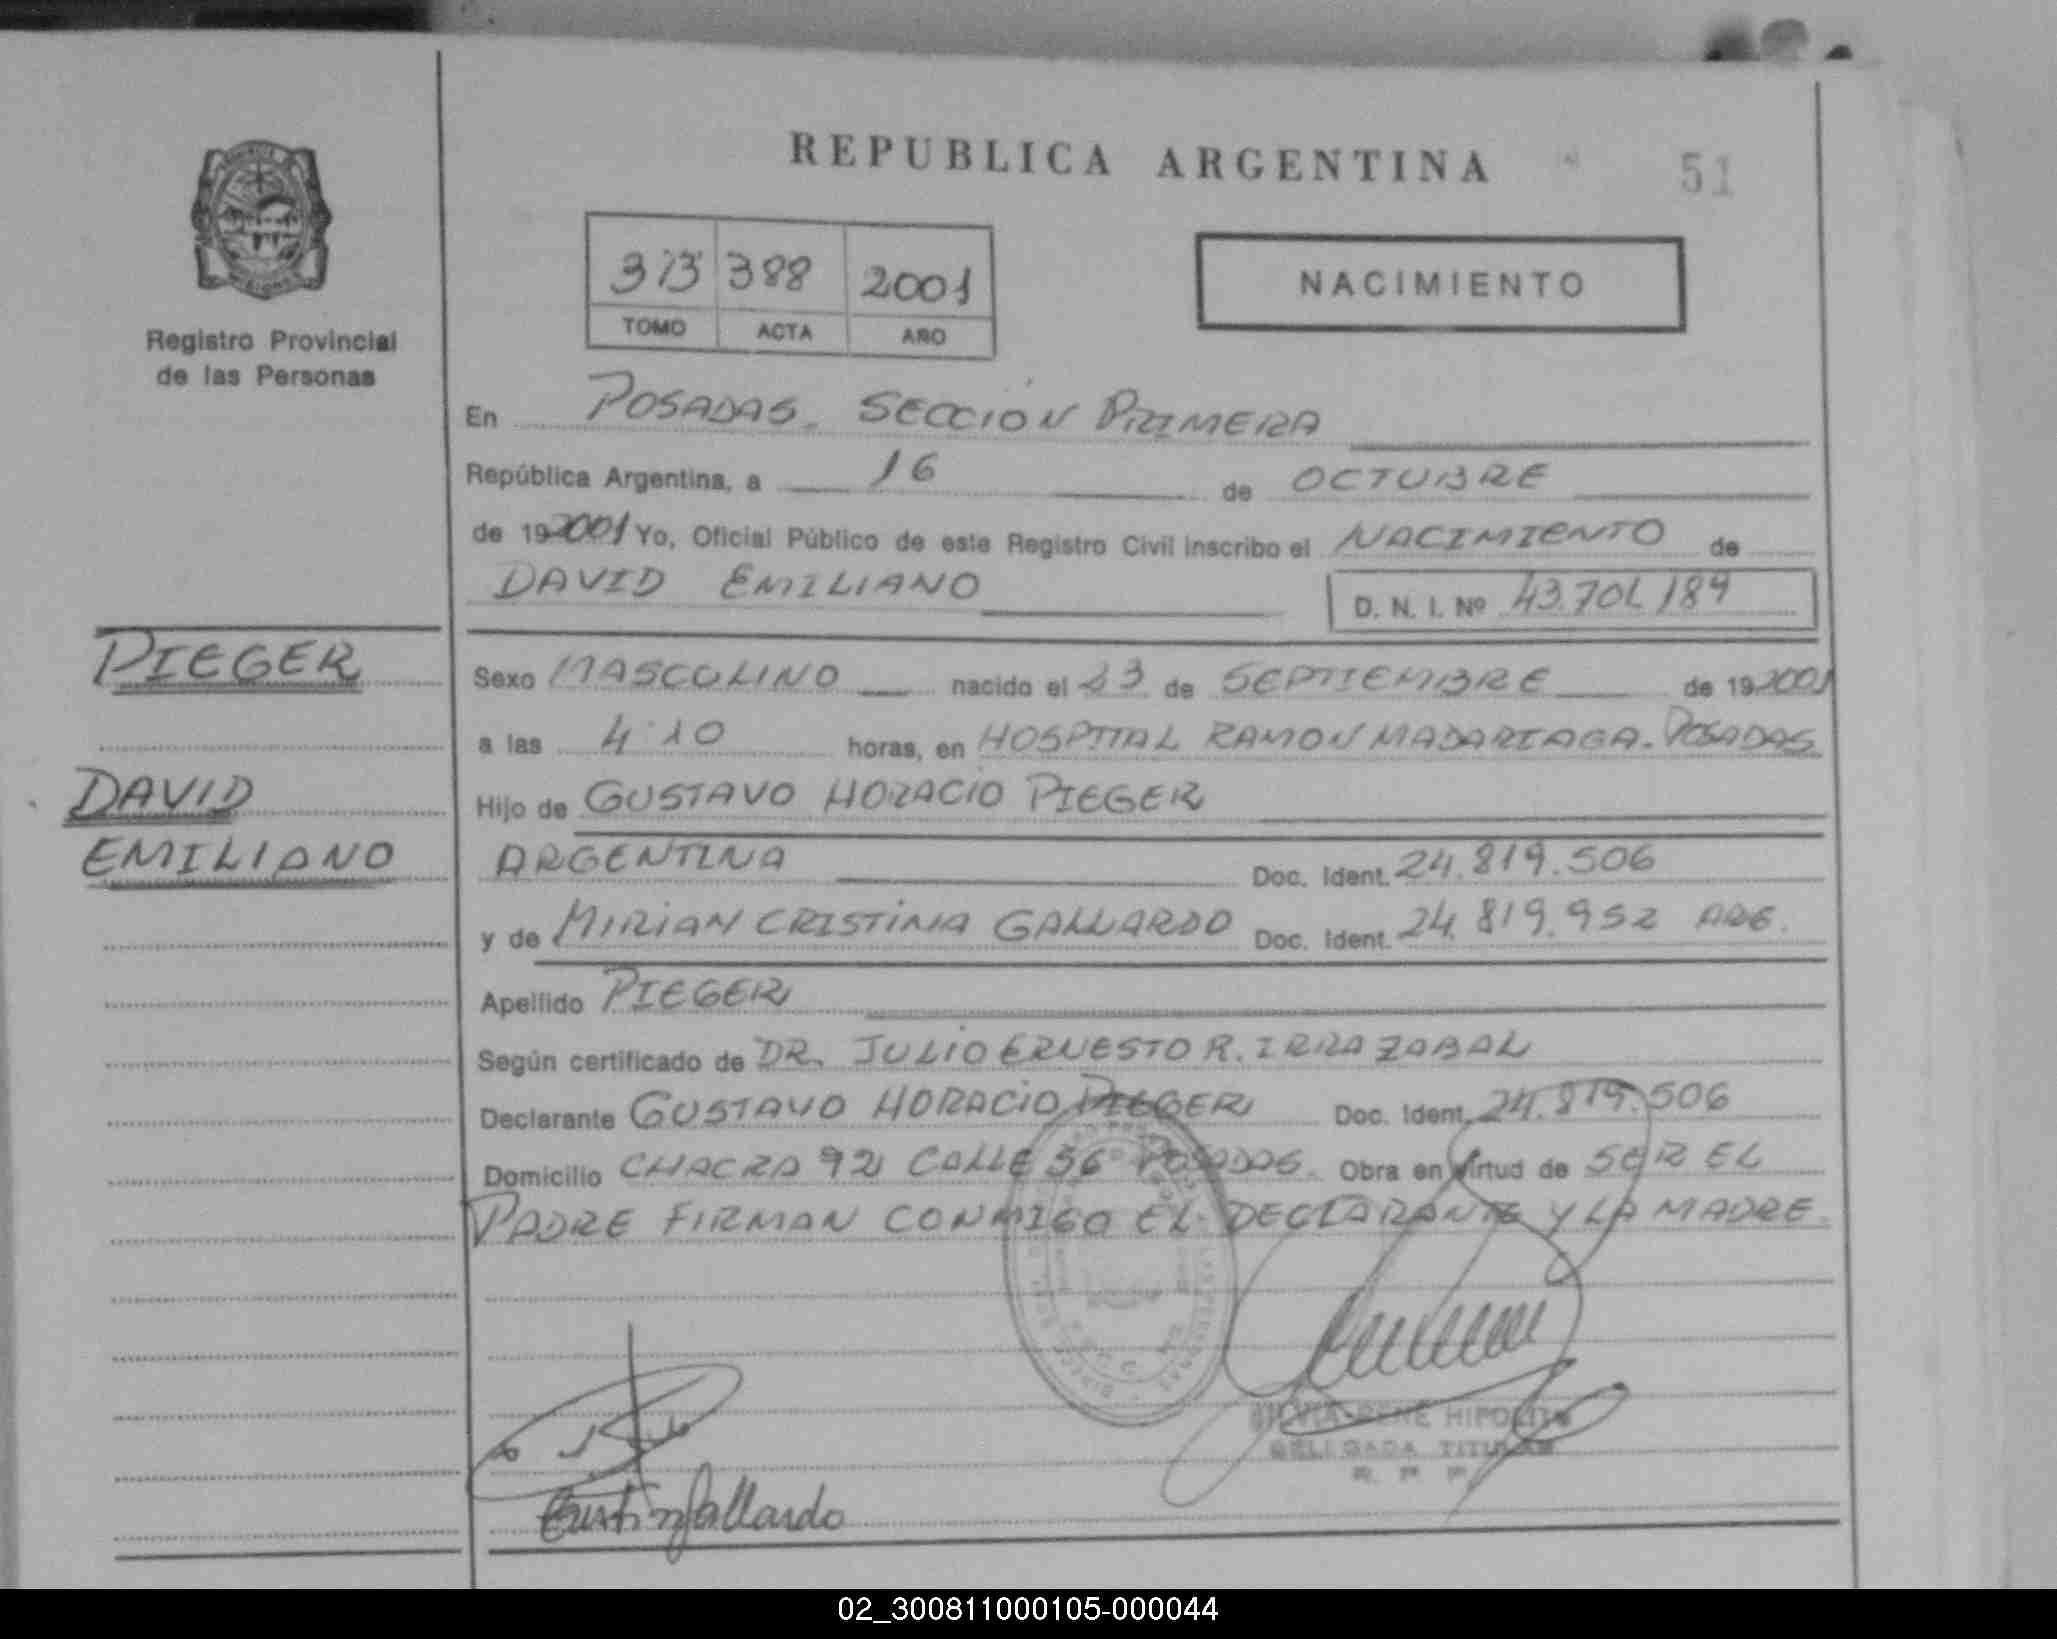 REPUBLICA ARGENTINA
51
Registro Provincial
de las Personas
388 2001
TOMO ACTA AÑO
NACIMIENTO
En POSADAS. SECCION PRIMERA
República Argentina, a 16 de OCTUBRE
de 192001 Yo, Oficial Público de este Registro Civil inscribo el NACIMIENTO de
DAVID EMILIANO
D. N. I. Nº
PIEGER
DAVID
EMILIANO
Sexo MASCULINO nacido el de SEPTIEMBRE de 192001
a las 4:10 horas, en HOSPITAL RAMON MADARIAGA. POSADAS
Hijo de GUSTAVO HORACIO PIEGER
ARGENTINA Doc. Ident. 24.819.506
y de MIRIAN CRISTINA GALLARDO Doc. Ident. 24.819.952 ARG.
Apellido PIEGER
Según certificado de DR. JULIO ERNESTO R. IRRAZABAL
Declarante GUSTAVO HORACIO PIEGER Doc. Ident. 24.819.506
Domicilio CHACRA 92 CALLE POSADAS. Obra en virtud de SER EL
PADRE FIRMAN CONMIGO EL DECLARANTE Y LA MADRE.
SILVIA RENE HIPOLITO
DELEGADA TITULAR
R. P. P.
Gallardo
02_300811000105-000044